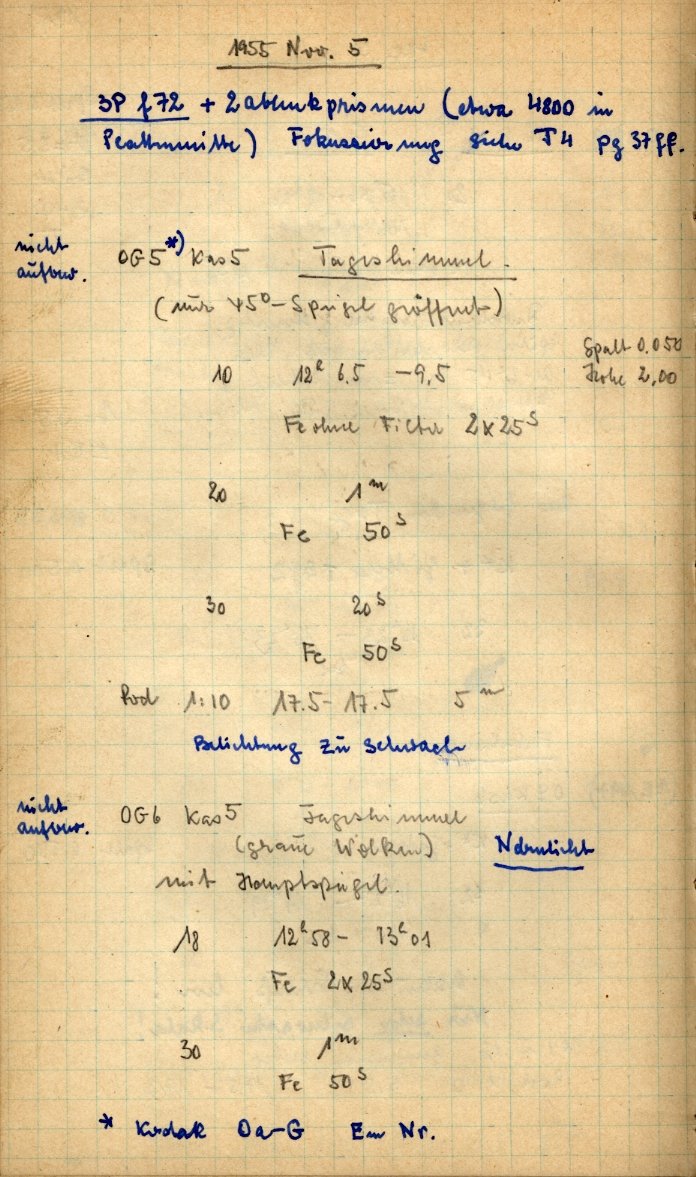 1955 Nov. 5
3P f72 + 2 Ablenkprismen (etwa 4800 in
Plattenmitte) Fokussierung siehe T4 pg 37ff.
nicht
aufbew.
OG5*) Kas5 Tageshimmel.
(nur 45°-Spiegel geöffnet)
Spalt 0.050
Höhe 2,00
10 12h 6.5 - 9,5
Fe ohne Filter 2x25s
20 1m
Fe 50s
30 20s
Fe 50s
1:10 17.5-17.5 5m
Belichtung zu schwach
nicht
aufbew.
OG6 Kas5 Tageshimmel
(graue Wolken)
mit Hauptspiegel.
18 12h58 - 13h01
Fe 2x25s
30 1m
Fe 50s
* Kodak Oa-G Em Nr.